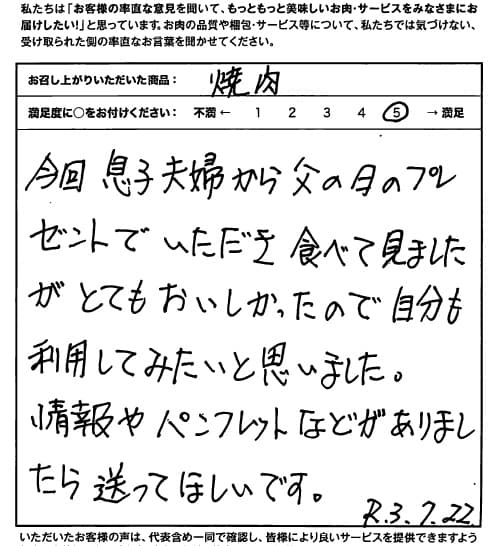 私たちは「お客様の率直な意見を聞いて、もっともっと美味しいお肉・サービスをみなさまにお
届けしたい!」と思っています。お肉の品質や梱包・サービス等について、私たちでは気づけない、
受け取られた側の率直なお言葉を聞かせてください。
お召し上がりいただいた商品： 焼肉
満足度に○をお付けください： 不満 ← 1 2 3 4 5 → 満足
今回 息子夫婦から父の日のプレ
ゼントでいただき食べて見ました
がとてもおいしかったので自分も
利用してみたいと思いました。
情報やパンフレットなどがありまし
たら送ってほしいです。
R.3.7.22
いただいたお客様の声は、代表含め一同で確認し、皆様により良いサービスを提供できますよう